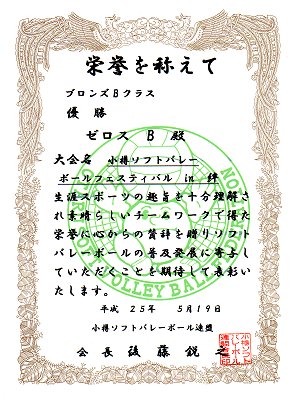 栄誉を称えて
ブロンズBクラス
優勝
ゼロス B 殿
大会名 小樽ソフトバレー
ボールフェスティバル in 絆
生涯スポーツの趣旨を十分理解さ
れ素晴らしいチームワークで得た
栄誉に心からの賛辞を贈りソフト
バレーボールの普及発展に寄与し
ていただくことを期待して表彰い
たします。
平成 25年 5月19日
小樽ソフトバレーボール連盟
会長 後藤 鋭之